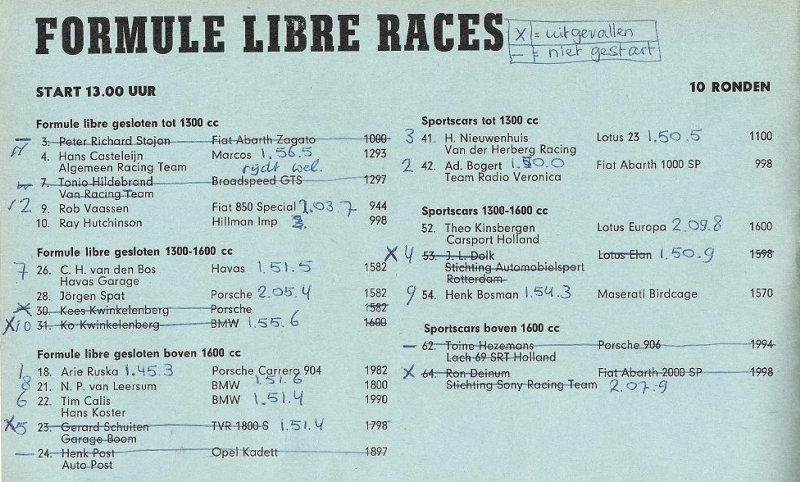 FORMULE LIBRE RACES
X = uitgevallen
— = niet gestart
START 13.00 UUR
10 RONDEN
Formule libre gesloten tot 1300 cc
— 3. Peter Richard Stojan Fiat Abarth Zagato 1000
11 4. Hans Casteleijn Marcos 1.56.5 1293
Algemeen Racing Team rijdt wel.
— 7. Tonio Hildebrand Broadspeed GTS 1297
Van Racing Team
12 9. Rob Vaassen Fiat 850 Special 2.03.7 944
10. Ray Hutchinson Hillman Imp 998
Formule libre gesloten 1300-1600 cc
7 26. C. H. van den Bos Havas 1.51.5 1582
Havas Garage
28. Jörgen Spat Porsche 2.05.4 1582
X 30. Kees Kwinkelenberg Porsche 1582
X10 31. Ko Kwinkelenberg BMW 1.55.6 1600
Formule libre gesloten boven 1600 cc
1 18. Arie Ruska 1.45.3 Porsche Carrera 904 1982
8 21. N. P. van Leersum BMW 1.51.6 1800
6 22. Tim Calis BMW 1.51.4 1990
Hans Koster
X5 23. Gerard Schuiten TVR 1800 S 1.51.4 1798
Garage Boom
— 24. Henk Post Opel Kadett 1897
Auto Post
Sportscars tot 1300 cc
3 41. H. Nieuwenhuis Lotus 23 1.50.5 1100
Van der Herberg Racing
2 42. Ad. Bogert 1.50.0 Fiat Abarth 1000 SP 998
Team Radio Veronica
Sportscars 1300-1600 cc
52. Theo Kinsbergen Lotus Europa 2.09.8 1600
Carsport Holland
X4 53. J. L. Dolk Lotus Elan 1.50.9 1598
Stichting Automobielsport
Rotterdam
9 54. Henk Bosman 1.54.3 Maserati Birdcage 1570
Sportscars boven 1600 cc
— 62. Toine Hezemans Porsche 906 1994
Lach 69 SRT Holland
X 64. Ron Deinum Fiat Abarth 2000 SP 1998
Stichting Sony Racing Team 2.07.9